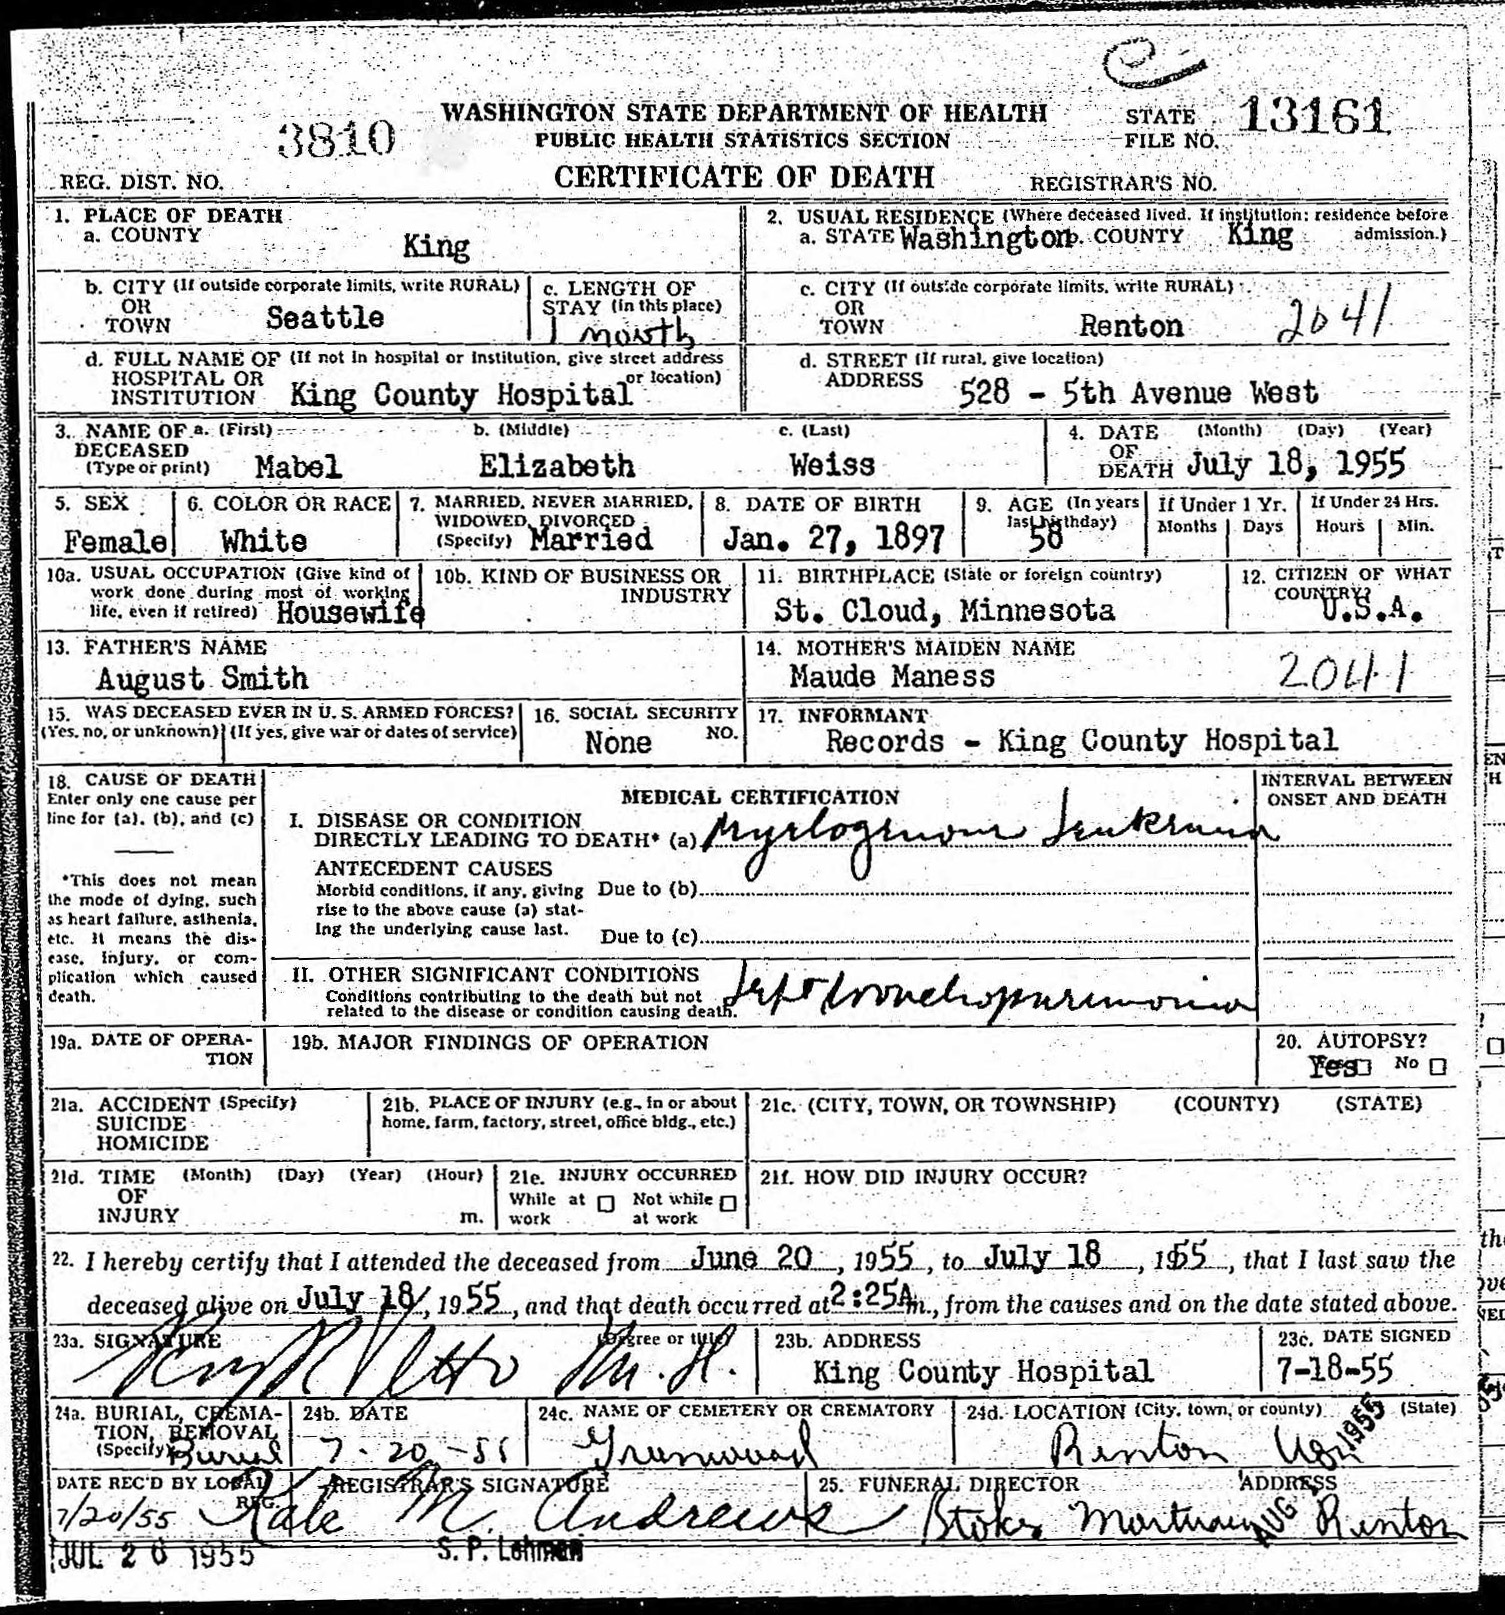 WASHINGTON STATE DEPARTMENT OF HEALTH
PUBLIC HEALTH STATISTICS SECTION
CERTIFICATE OF DEATH
3810
REG. DIST. NO.
STATE FILE NO. 13161
REGISTRAR'S NO.
1. PLACE OF DEATH
a. COUNTY King
2. USUAL RESIDENCE (Where deceased lived. If institution: residence before admission.)
a. STATE Washington b. COUNTY King
b. CITY (If outside corporate limits, write RURAL) OR TOWN Seattle
c. LENGTH OF STAY (in this place) 1 month
c. CITY (If outside corporate limits, write RURAL) OR TOWN Renton 2041
d. FULL NAME OF (If not in hospital or institution, give street address or location) HOSPITAL OR INSTITUTION King County Hospital
d. STREET (If rural, give location) ADDRESS 528 - 5th Avenue West
3. NAME OF DECEASED (Type or print) a. (First) Mabel b. (Middle) Elizabeth c. (Last) Weiss
4. DATE OF DEATH (Month) (Day) (Year) July 18, 1955
5. SEX Female
6. COLOR OR RACE White
7. MARRIED, NEVER MARRIED, WIDOWED, DIVORCED (Specify) Married
8. DATE OF BIRTH Jan. 27, 1897
9. AGE (In years last birthday) 58
If Under 1 Yr. Months Days
If Under 24 Hrs. Hours Min.
10a. USUAL OCCUPATION (Give kind of work done during most of working life, even if retired) Housewife
10b. KIND OF BUSINESS OR INDUSTRY
11. BIRTHPLACE (State or foreign country) St. Cloud, Minnesota
12. CITIZEN OF WHAT COUNTRY? U.S.A.
13. FATHER'S NAME August Smith
14. MOTHER'S MAIDEN NAME Maude Maness 2041
15. WAS DECEASED EVER IN U. S. ARMED FORCES? (Yes, no, or unknown) (If yes, give war or dates of service)
16. SOCIAL SECURITY NO. None
17. INFORMANT Records - King County Hospital
18. CAUSE OF DEATH
Enter only one cause per line for (a), (b), and (c)
*This does not mean the mode of dying, such as heart failure, asthenia, etc. It means the disease, injury, or complication which caused death.
MEDICAL CERTIFICATION
INTERVAL BETWEEN ONSET AND DEATH
I. DISEASE OR CONDITION DIRECTLY LEADING TO DEATH* (a) Myelogenous Leukemia
ANTECEDENT CAUSES
Morbid conditions, if any, giving rise to the above cause (a) stating the underlying cause last.
Due to (b)
Due to (c)
II. OTHER SIGNIFICANT CONDITIONS
Conditions contributing to the death but not related to the disease or condition causing death.
Left bronchopneumonia
19a. DATE OF OPERATION
19b. MAJOR FINDINGS OF OPERATION
20. AUTOPSY? Yes No
21a. ACCIDENT (Specify) SUICIDE HOMICIDE
21b. PLACE OF INJURY (e.g., in or about home, farm, factory, street, office bldg., etc.)
21c. (CITY, TOWN, OR TOWNSHIP) (COUNTY) (STATE)
21d. TIME OF INJURY (Month) (Day) (Year) (Hour) m.
21e. INJURY OCCURRED While at work Not while at work
21f. HOW DID INJURY OCCUR?
22. I hereby certify that I attended the deceased from June 20, 1955, to July 18, 1955, that I last saw the
deceased alive on July 18, 1955, and that death occurred at 2:25A m., from the causes and on the date stated above.
23a. SIGNATURE (Degree or title) M.D.
23b. ADDRESS King County Hospital
23c. DATE SIGNED 7-18-55
24a. BURIAL, CREMATION, REMOVAL (Specify) Burial
24b. DATE 7-20-55
24c. NAME OF CEMETERY OR CREMATORY Greenwood
24d. LOCATION (City, town, or county) (State) Renton
DATE REC'D BY LOCAL REG. 7/20/55
REGISTRAR'S SIGNATURE Kate M. Andrews
25. FUNERAL DIRECTOR ADDRESS Stokes Mortuary Renton
AUG 1955
JUL 20 1955
S. P. Lehman